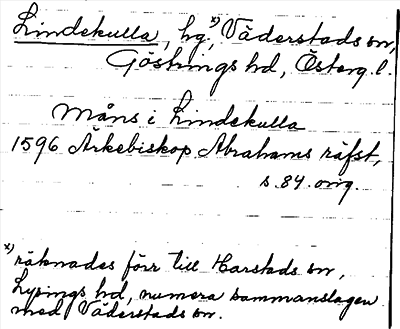 Lindekulla, hg, x) Väderstads sn,
Göstrings hd, Österg. l.
Måns i Lindekulla
1596 Ärkebiskop Abrahams räfst,
s. 84. orig.
x) räknades förr till Harstads sn,
Lysings hd, numera sammanslagen
med Väderstads sn.